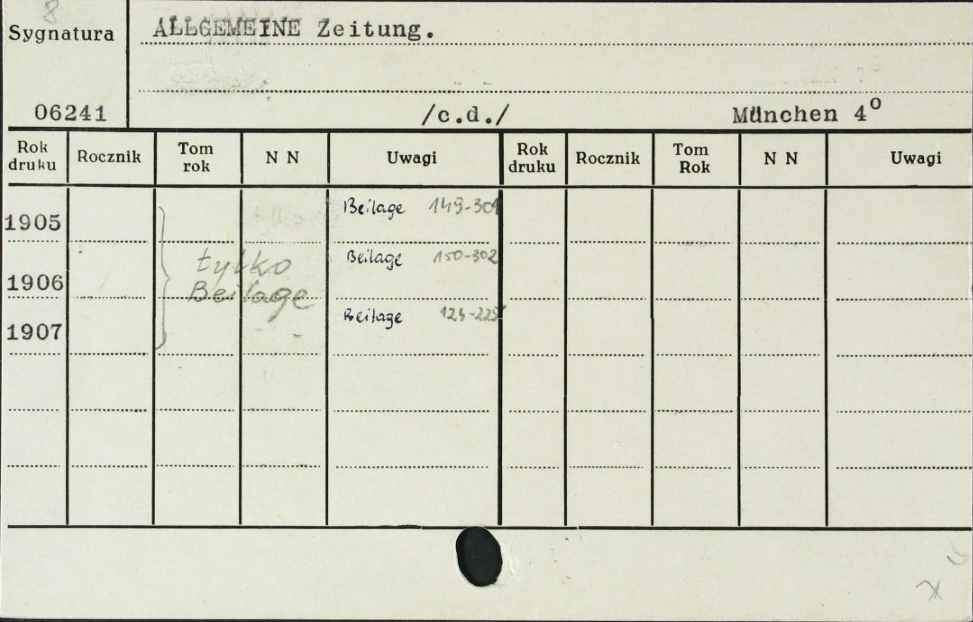 8
Sygnatura
ALLGEMEINE Zeitung.
06241
/c.d./
München 4⁰
Rok druku Rocznik Tom rok N N Uwagi Rok druku Rocznik Tom Rok N N Uwagi
1905 Beilage 149-301
1906 tylko Beilage Beilage 150-302
1907 Beilage